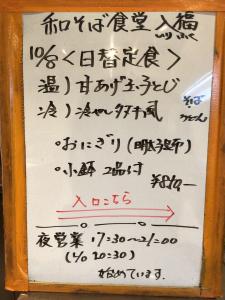 和そば食堂 入福
10/8<日替定食>
温) 甘あげ玉子とじ
冷) 冷やしタヌキ風
そば
うどん
・おにぎり (明太子)
・小鉢 2品付
入口こちら
夜営業 17:30~21:00
(L/O 20:30)
始めています。